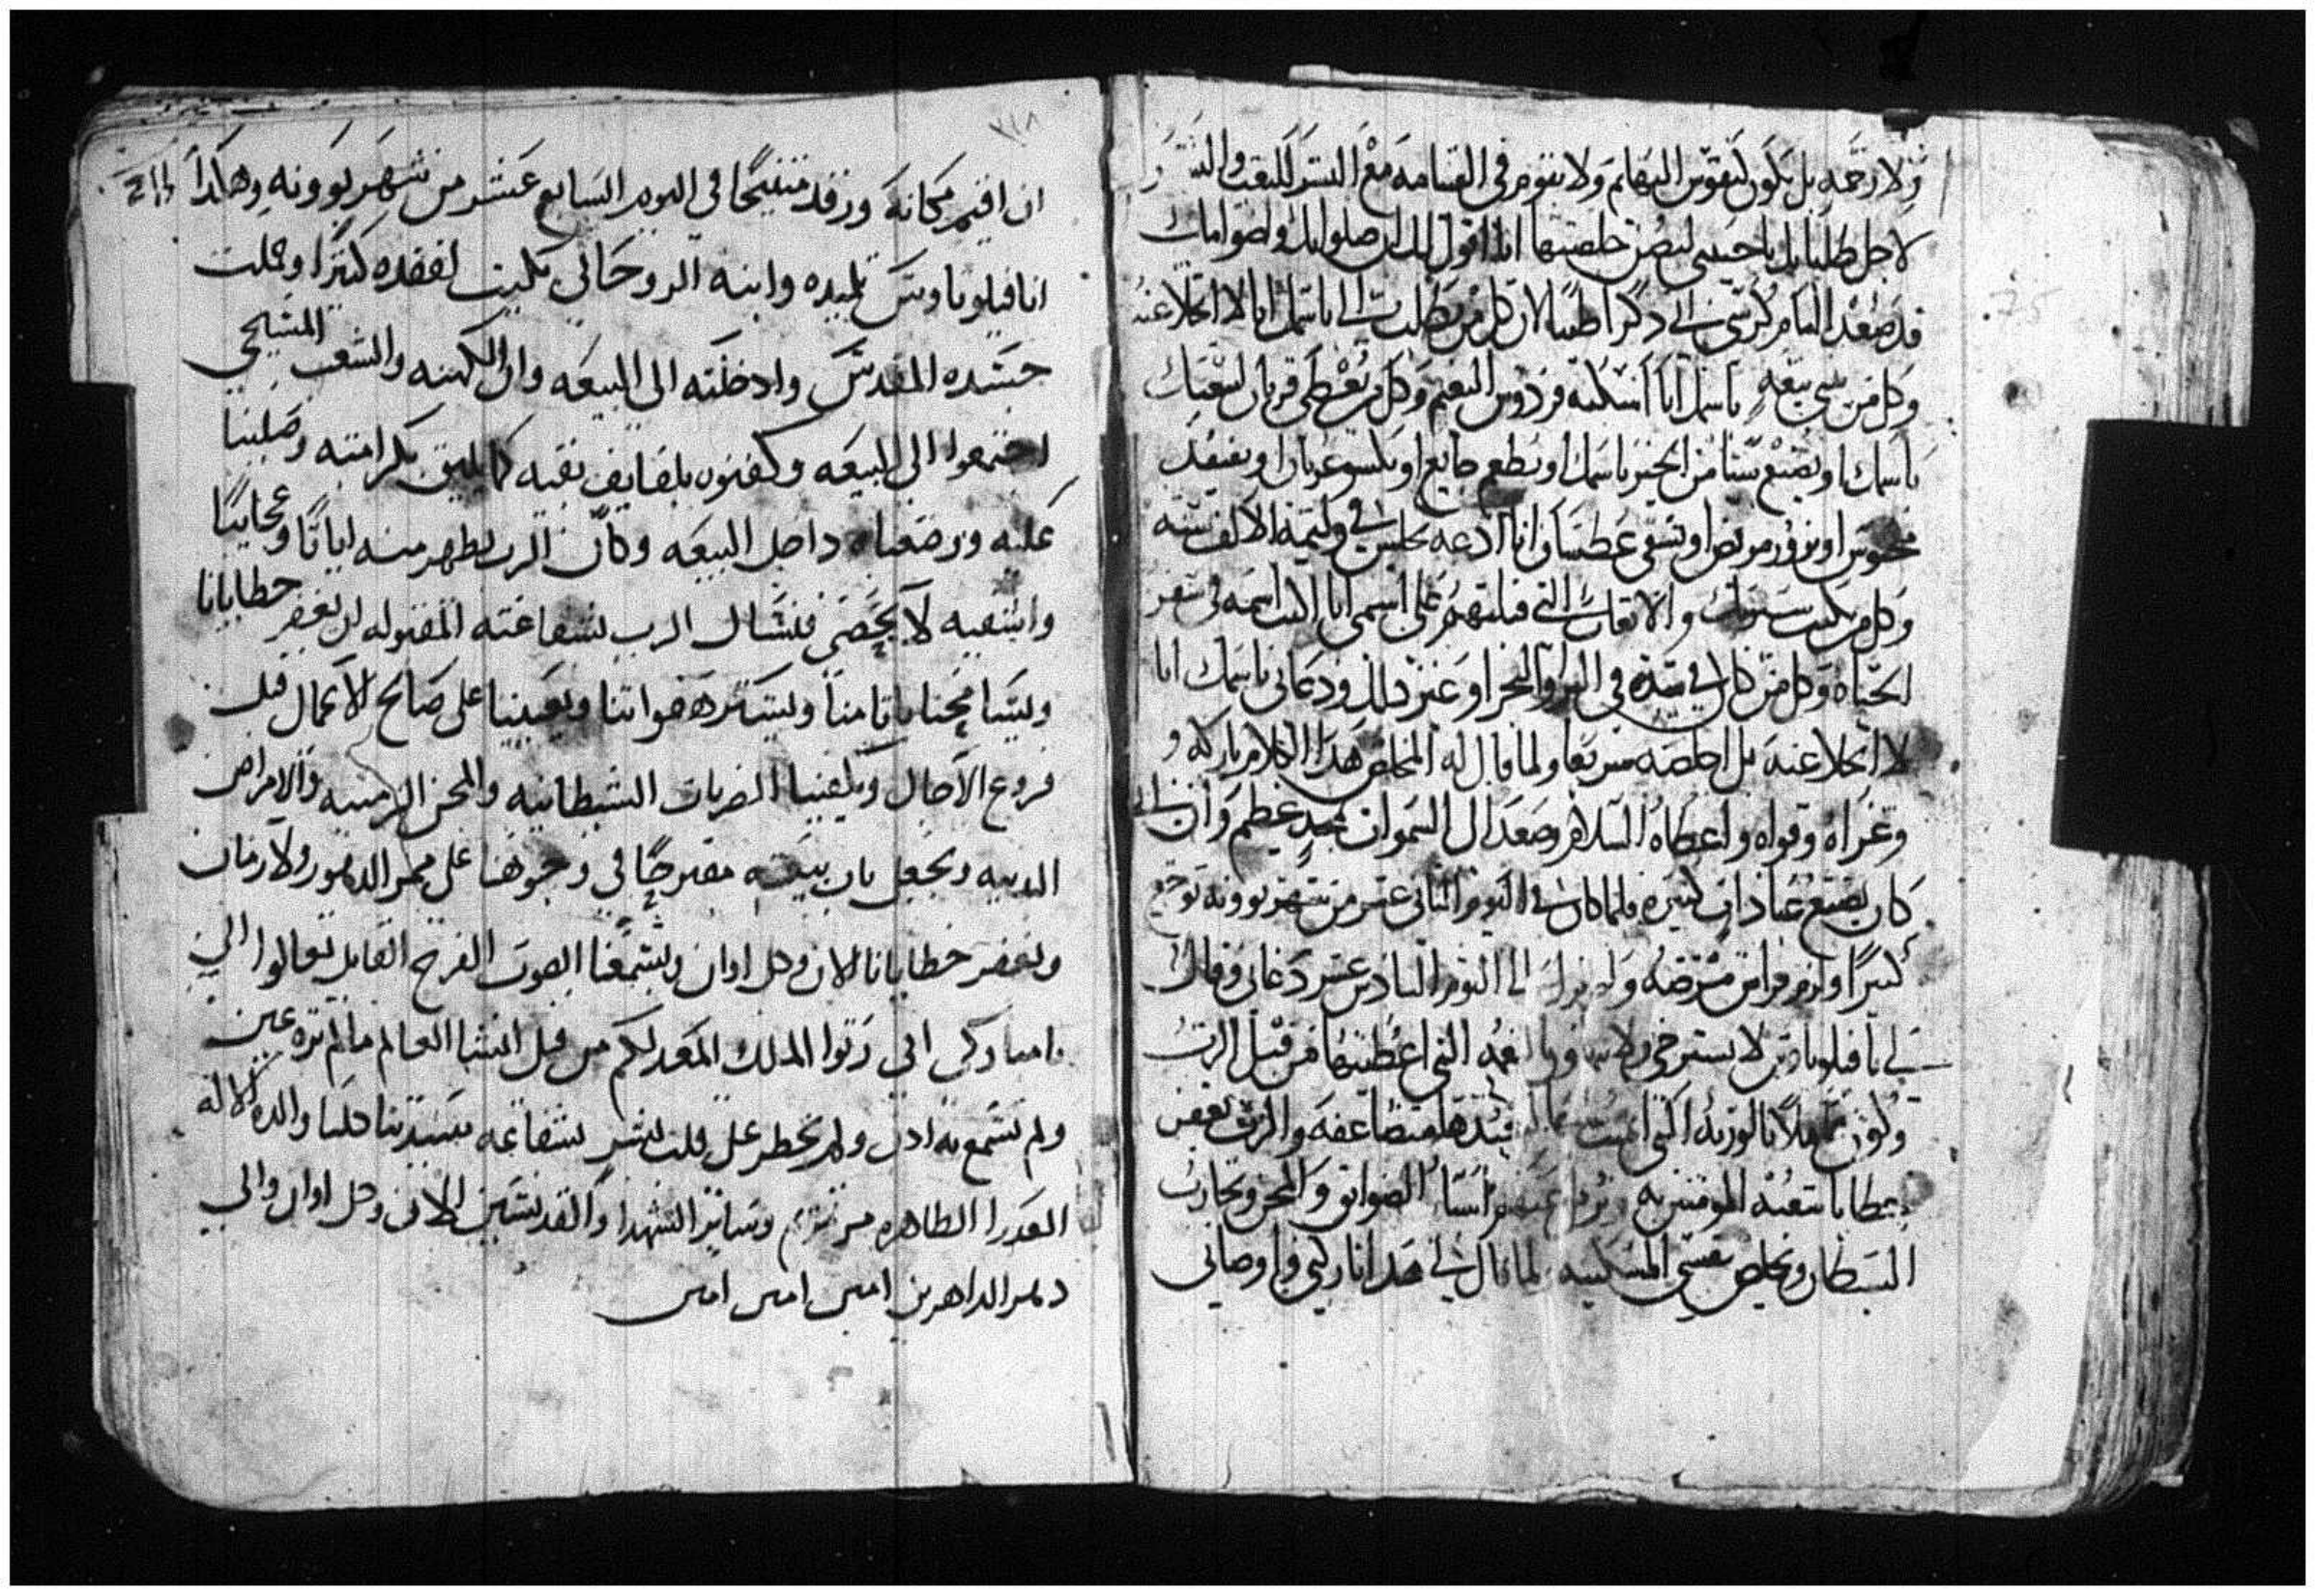 ولا رحمه بل يكون لنفوس البهايم ولا يقوم في القيامه مع البشر للبعث والنشر
لاجل طلباتك يا حبيبي ليصن خلصتها انا اقول لك ان صلواتك واصواماتك
قد صعد امام كرسي الي ذكرا طيبا لان كل من يطلب الي باسمك انا لا اتخلا عنه
وكل من يبني بيعه باسمك انا اسكنه فردوس النعيم وكل من يعطي قربان لبيعتك
باسمك او يصنع شيا من الخير باسمك او يطعم جايع او يكسو عريان او يفتقد
محبوس او يزور مريض او يسقي عطشان انا ادعه يجلس في وليمة الالف سنه
وكل من يكتب سيرتك والاتعاب التي قبلتهم علي اسمي انا اكتب اسمه في سفر
الحياه وكل من كان في شده في البر او البحر او غير ذلك ودعاني باسمك انا
لا اتخلا عنه بل اخلصه سريعا ولما قال له المخلص هذا الكلام باركه و
وعزاه وقواه واعطاه السلام وصعد الي السموات بمجد عظيم وان ابي
كان يصنع عبادات كثيره فلما كان في اليوم الثاني عشر من شهر بوونه توجع
كثيرا ولزم فراش مرضه ولم يزل الي اليوم السادس عشر دعاني وقال
لي يا فيلوباوس لا تسترخي ولا النعمه التي اعطيتها من قبل الرب
وكون عاملا بالوزنه التي مضاعفه والرب يغفر
خطايا شعبه المومنين به الضوايق والمحن وتجارب
الشيطان ويخلص نفسي المسكينه لما قال لي هذا باركني واوصاني
٢١٨
ان اقيم مكانه ورقد متنيحا في اليوم السابع عشر من شهر بوونه وهكذا
انا فيلوباوس تلميده وابنه الروحاني بكيت لفقده كثيرا وحملت
جسده المقدس وادخلته الي البيعه وان الكهنه والشعب المسيحي
اجتمعوا الي البيعه وكفنوه بلفايف نقيه كما يليق بكرامته وصلينا
عليه ووضعناه داخل البيعه وكان الرب يظهر منه اياتا وعجايبا
واشفيه لا تحصي فنسال الرب بشفاعته المقبوله ان يغفر خطايانا
ويسامحنا باتامنا ويستر هفواتنا ويعيننا علي صالح الاعمال قبل
فروغ الاجال ويكفينا الضربات الشيطانيه والمحن الزمنيه والامراض
البدنيه ويجعل باب بيعته مفتوحا في وجوهنا علي ممر الدهور والازمان
ويغفر خطايانا الان وكل اوان ويسمعنا الصوت الفرح القايل تعالوا الي
يا مباركي ابي رتوا الملك المعد لكم من قبل انشا العالم ما لم تره عين
ولم تسمع به ادن ولم يخطر علي قلب بشر بشفاعه سيدتنا كلنا والدة الاله
العدرا الطاهره مرتمريم وساير الشهدا والقديسين الان وكل اوان والي
دهر الداهرين امين امين امين